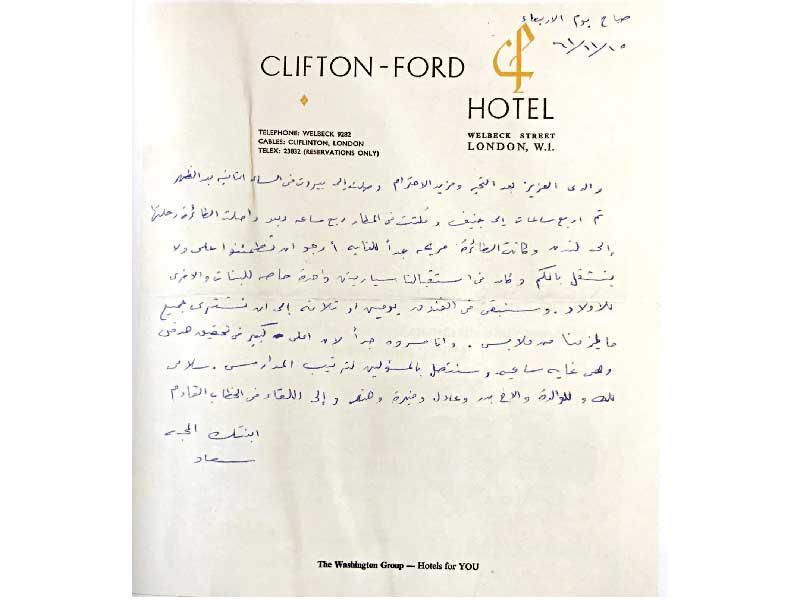 صباح يوم الاربعاء
٦١/١١/١٥
CLIFTON-FORD
HOTEL
TELEPHONE: WELBECK 9282
CABLES: CLIFLINTON, LONDON
TELEX: 23832 (RESERVATIONS ONLY)
WELBECK STREET
LONDON, W.1.
والدى العزيز بعد التحيه ومزيد الاحترام وصلت إلى بيروت فى الساعه الثانيه بعد الظهر
ثم اربع ساعات إلى جنيف ومكثت فى المطار ربع ساعه وبعد واصلت الطائرة رحلتها
إلى لندن وكانت الطائرة مريحه جداً للغايه أرجو ان تطمئنوا على ولا
ينشغل بالكم وكان فى استقبالنا سيارتين واحدة خاصه للبنات والاخرى
للأولاد. وسنبقى فى الفندق يومين او ثلاثه إلى ان نشترى جميع
ما يلزمنا من ملابس. وانا مسروره جداً لان املى كبير فى تحقيق هدفى
وهى غايه ساميه وسنتصل بالمسؤلين لترتيب المدارس. سلامى
لك وللوالدة والاخ بدر وعادل وهند وإلى اللقاء فى الخطاب القادم
ابنتك
سعاد
The Washington Group — Hotels for YOU